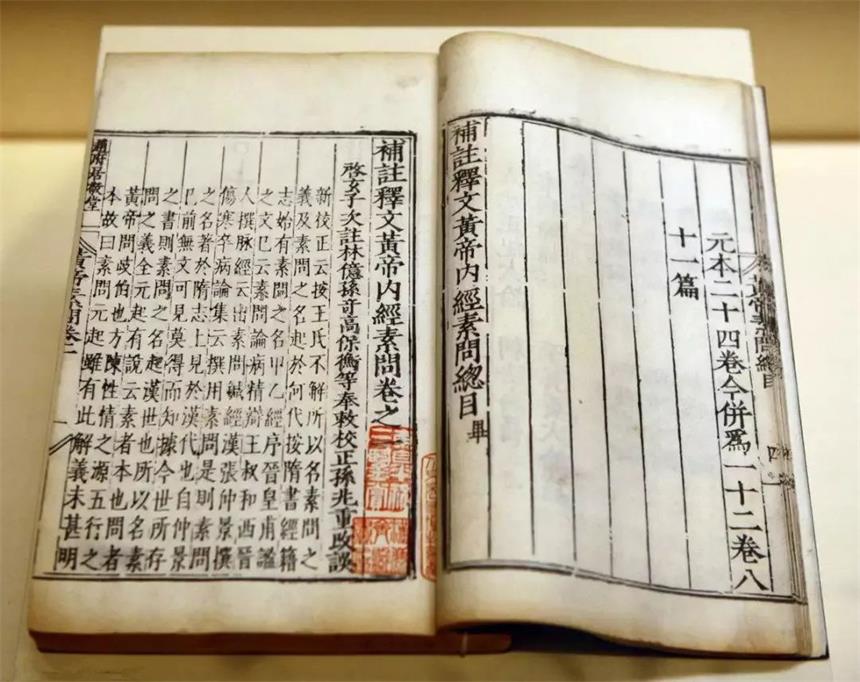 元本二十四卷今併爲一十二卷八
十一篇
補註釋文黃帝內經素問總目 畢
補註釋文黃帝內經素問卷之一
啓玄子次註林億孫奇高保衡等奉敕校正孫兆重改誤
新校正云按王氏不解所以名素問之
義及素問之名起於何代按隋書經籍
志始有素問之名甲乙經序晉皇甫謐
之文已云素問論病精辯王叔和西晉
人撰脉經云出素問鍼經漢張仲景撰
傷寒卒病論集云撰用素問是則素問
之名著於隋志上見於漢代也自仲景
已前無文可見莫得而知據今世所存
之書則素問之名起漢世也所以名素
問之義全元起有說云素者本也問者
黃帝問歧伯也方陳性情之源五行之
本故曰素問元起雖有此解義未甚明
趙府居敬堂
黃帝素問卷一